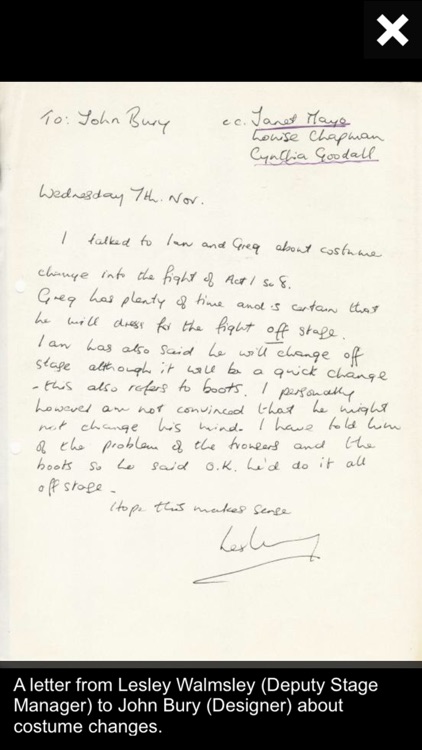 To: John Bury
c.c. Janet Mayo
Louise Chapman
Cynthia Goodall
Wednesday 7th. Nov.
I talked to Ian and Greg about costume
change into the fight of Act 1 sc 8.
Greg has plenty of time and is certain that
he will dress for the fight off stage.
Ian has also said he will change off
stage although it will be a quick change
- this also refers to boots. I personally
however am not convinced that he might
not change his mind. I have told him
of the problem of the trousers and the
boots so he said O.K. he'd do it all
offstage.
Hope this makes sense
Lesley
A letter from Lesley Walmsley (Deputy Stage
Manager) to John Bury (Designer) about
costume changes.